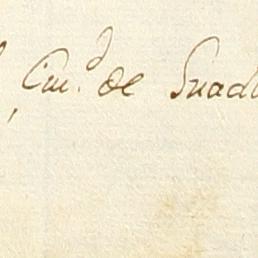 Ciu.d de Guada